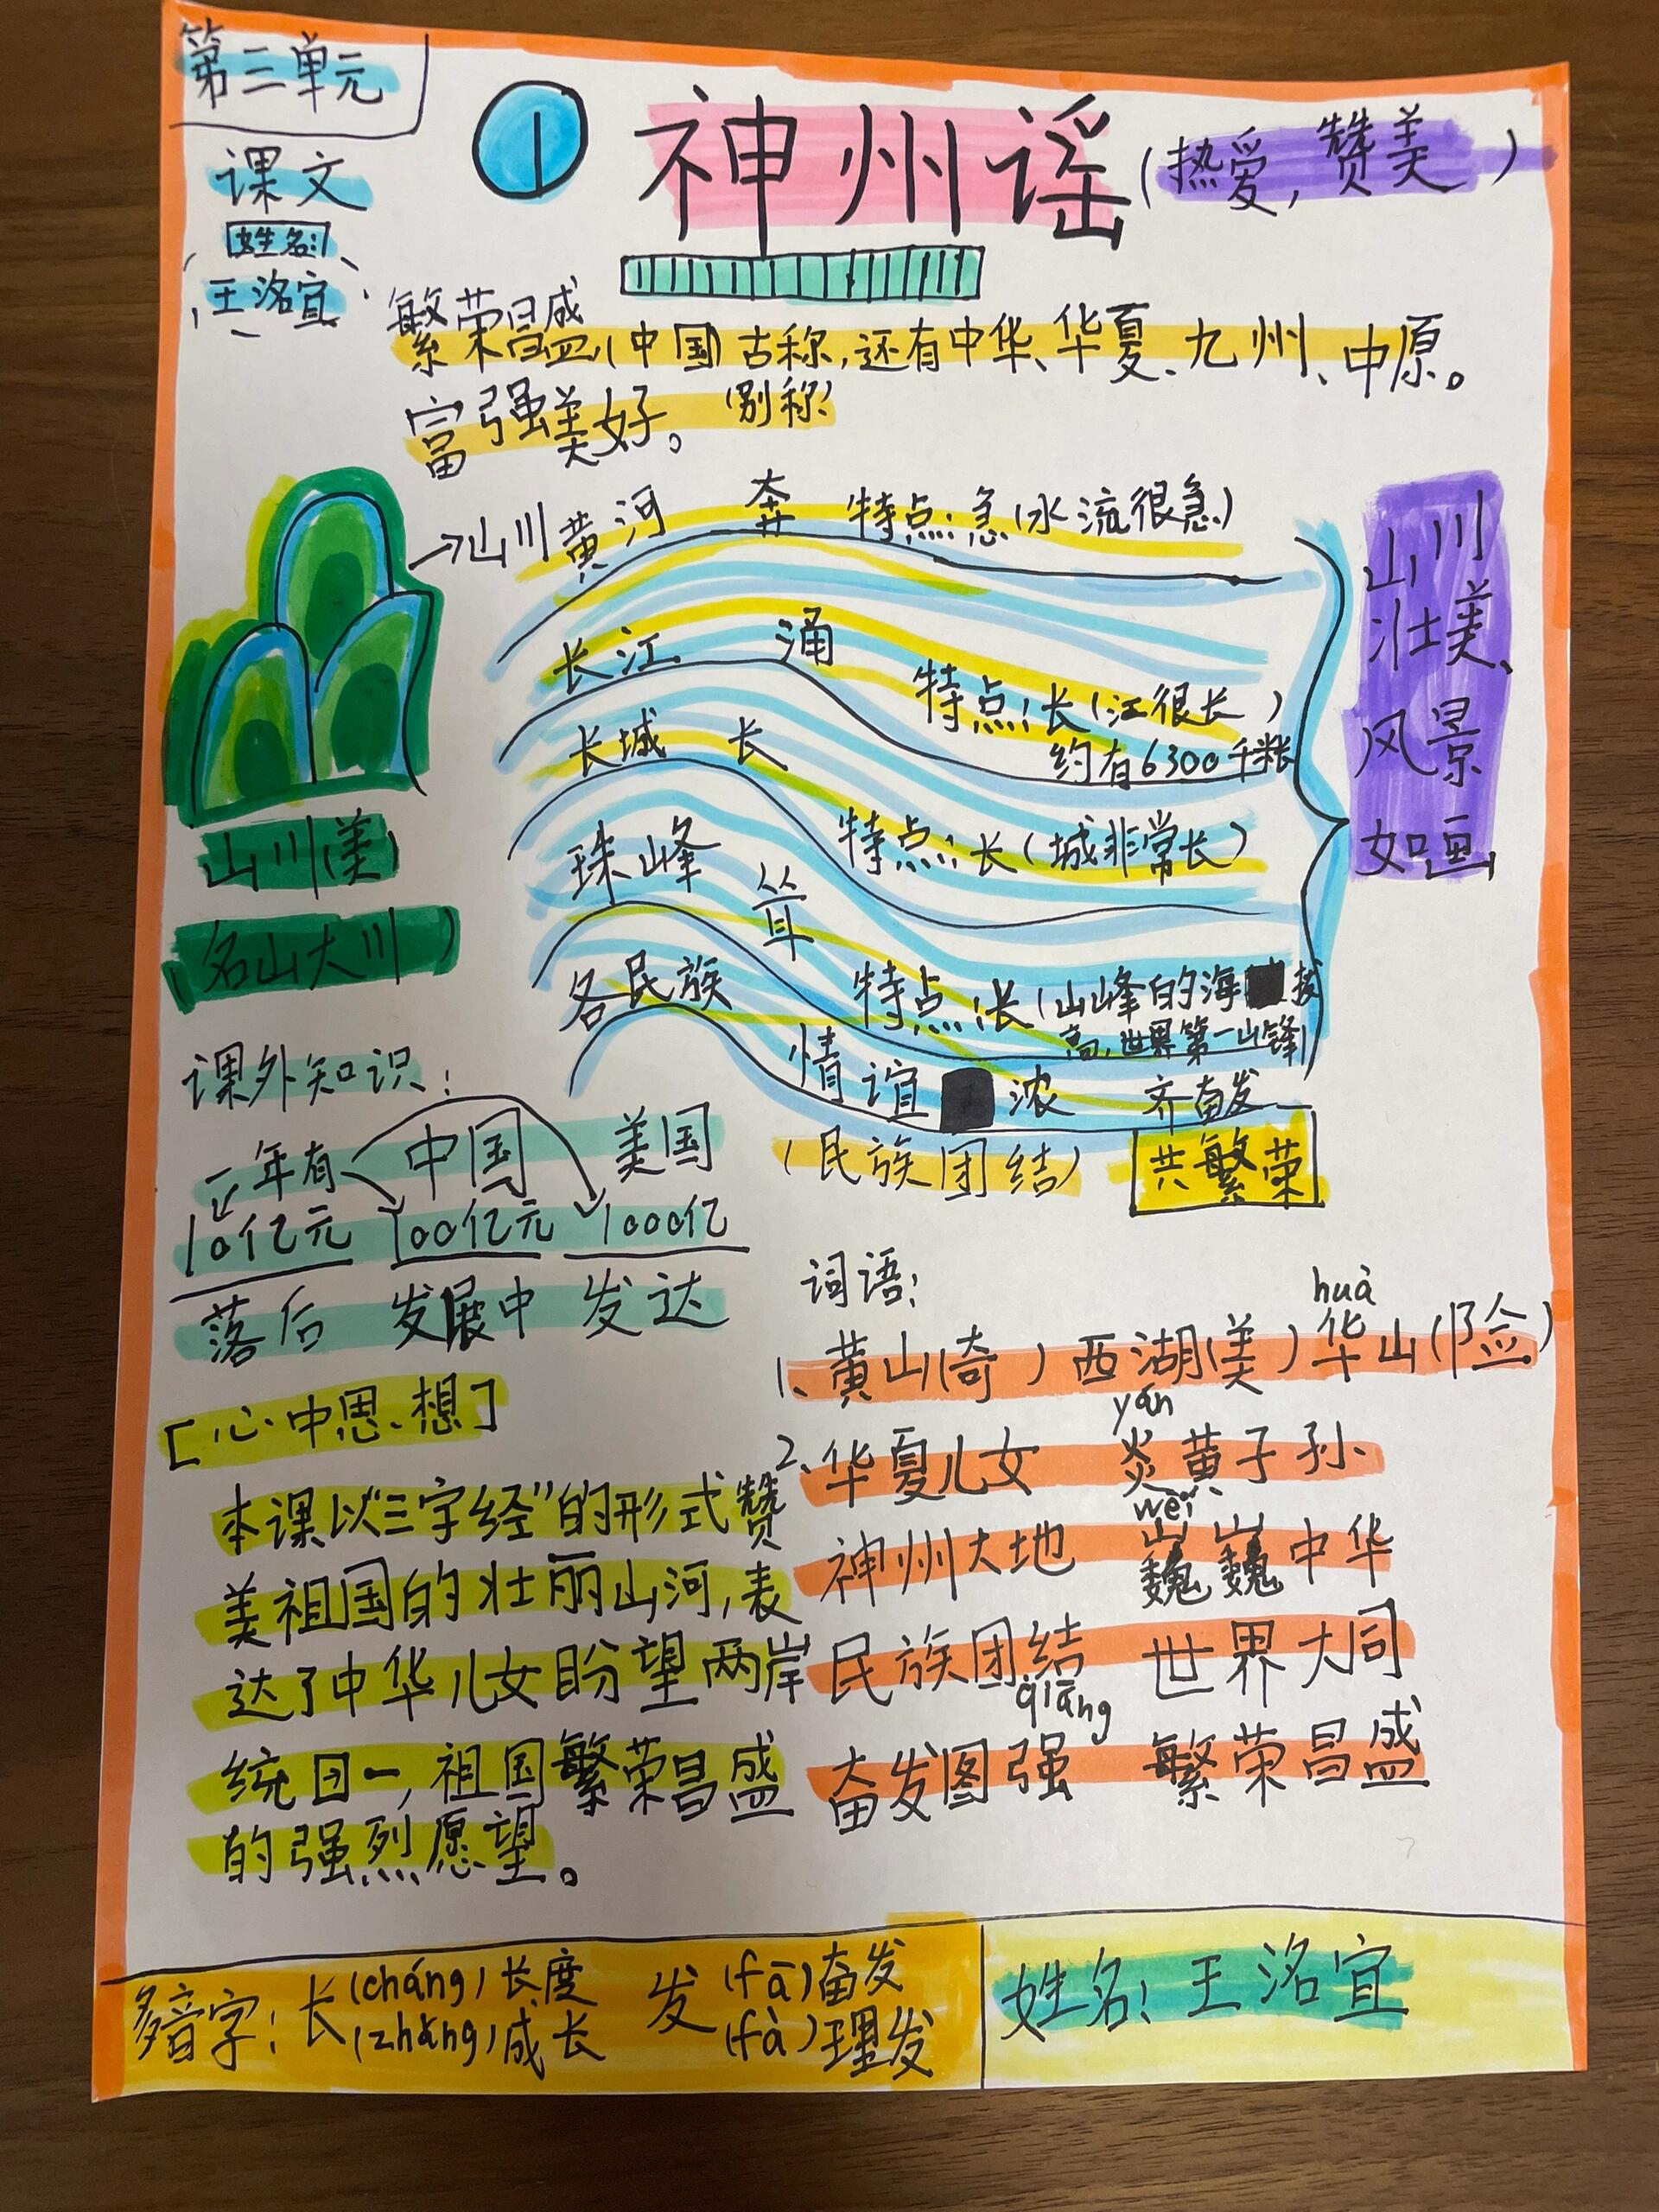 第三单元
课文
姓名:
王洛宜
① 神州谣(热爱,赞美)
繁荣昌盛(中国)古称,还有中华、华夏、九州、中原。
富强美好。(别称)
→山川黄河 奔 特点:急(水流很急)
长江 涌
特点:长(江很长)
约有6300千米长
长城 长
特点:长(城非常长)
珠峰 耸
特点:长(山峰的海拔
高,世界第一山锋)
各民族 情谊浓 齐奋发
(民族团结) 共繁荣
山川
壮美、
风景
如画
山川(美)
(名山大川)
课外知识:
一年有 中国 美国
10亿元 100亿元 1000亿
落后 发展中 发达
[心中思想]
本课以“三字经”的形式赞
美祖国的壮丽山河,表
达了中华儿女盼望两岸
统一,祖国繁荣昌盛
的强烈愿望。
词语:
huà
1、黄山(奇) 西湖(美) 华山(险)
yán
2、华夏儿女 炎黄子孙
wēi
神州大地 巍巍中华
民族团结 世界大同
qiāng
奋发图强 繁荣昌盛
多音字: 长(cháng)长度 发(fā)奋发
(zhǎng)成长 (fà)理发
姓名:王洛宜